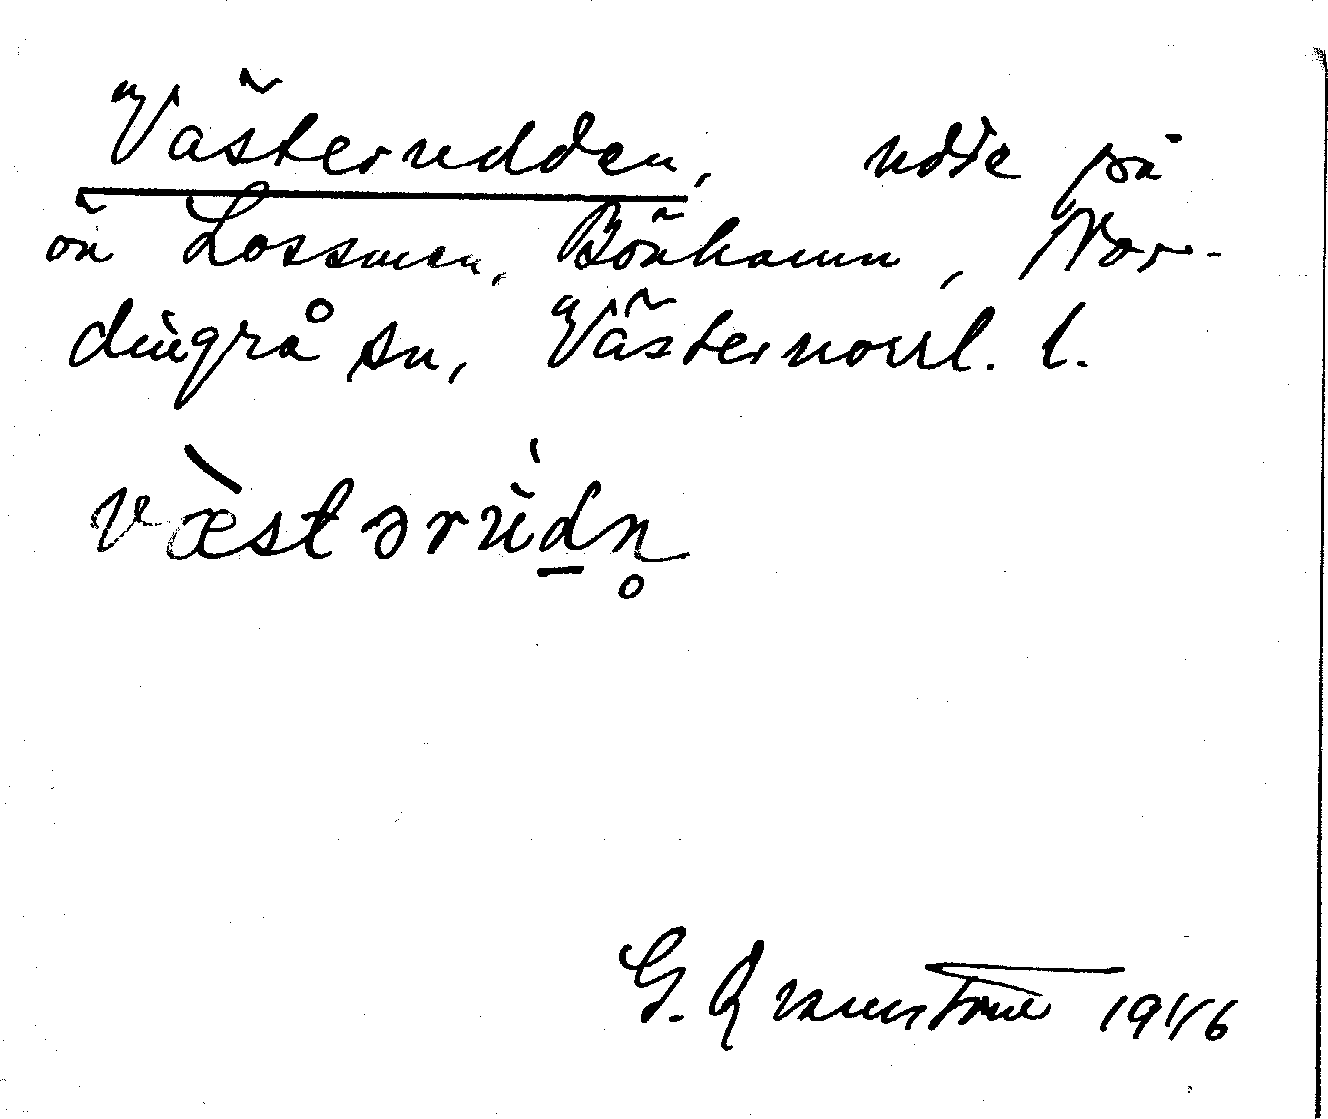 Västerudden, udde på
ön Lossmen, Bönhamn, Nor-
dingrå sn, Västernorrl. l.
væ̀stərùd̲n̥
G. Qvarnström 1946